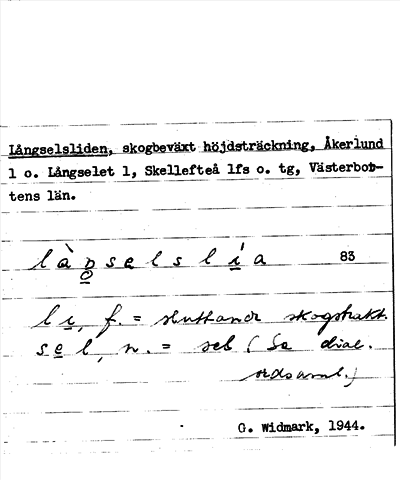 Långselsliden, skogbeväxt höjdsträckning, Åkerlund
1 o. Långselet 1, Skellefteå lfs o. tg, Västerbot-
tens län.
làŋselslía 83
lı, f. = sluttande skogstrakt.
sel, n. = sel (Se dial.
ordsaml.)
G. Widmark, 1944.